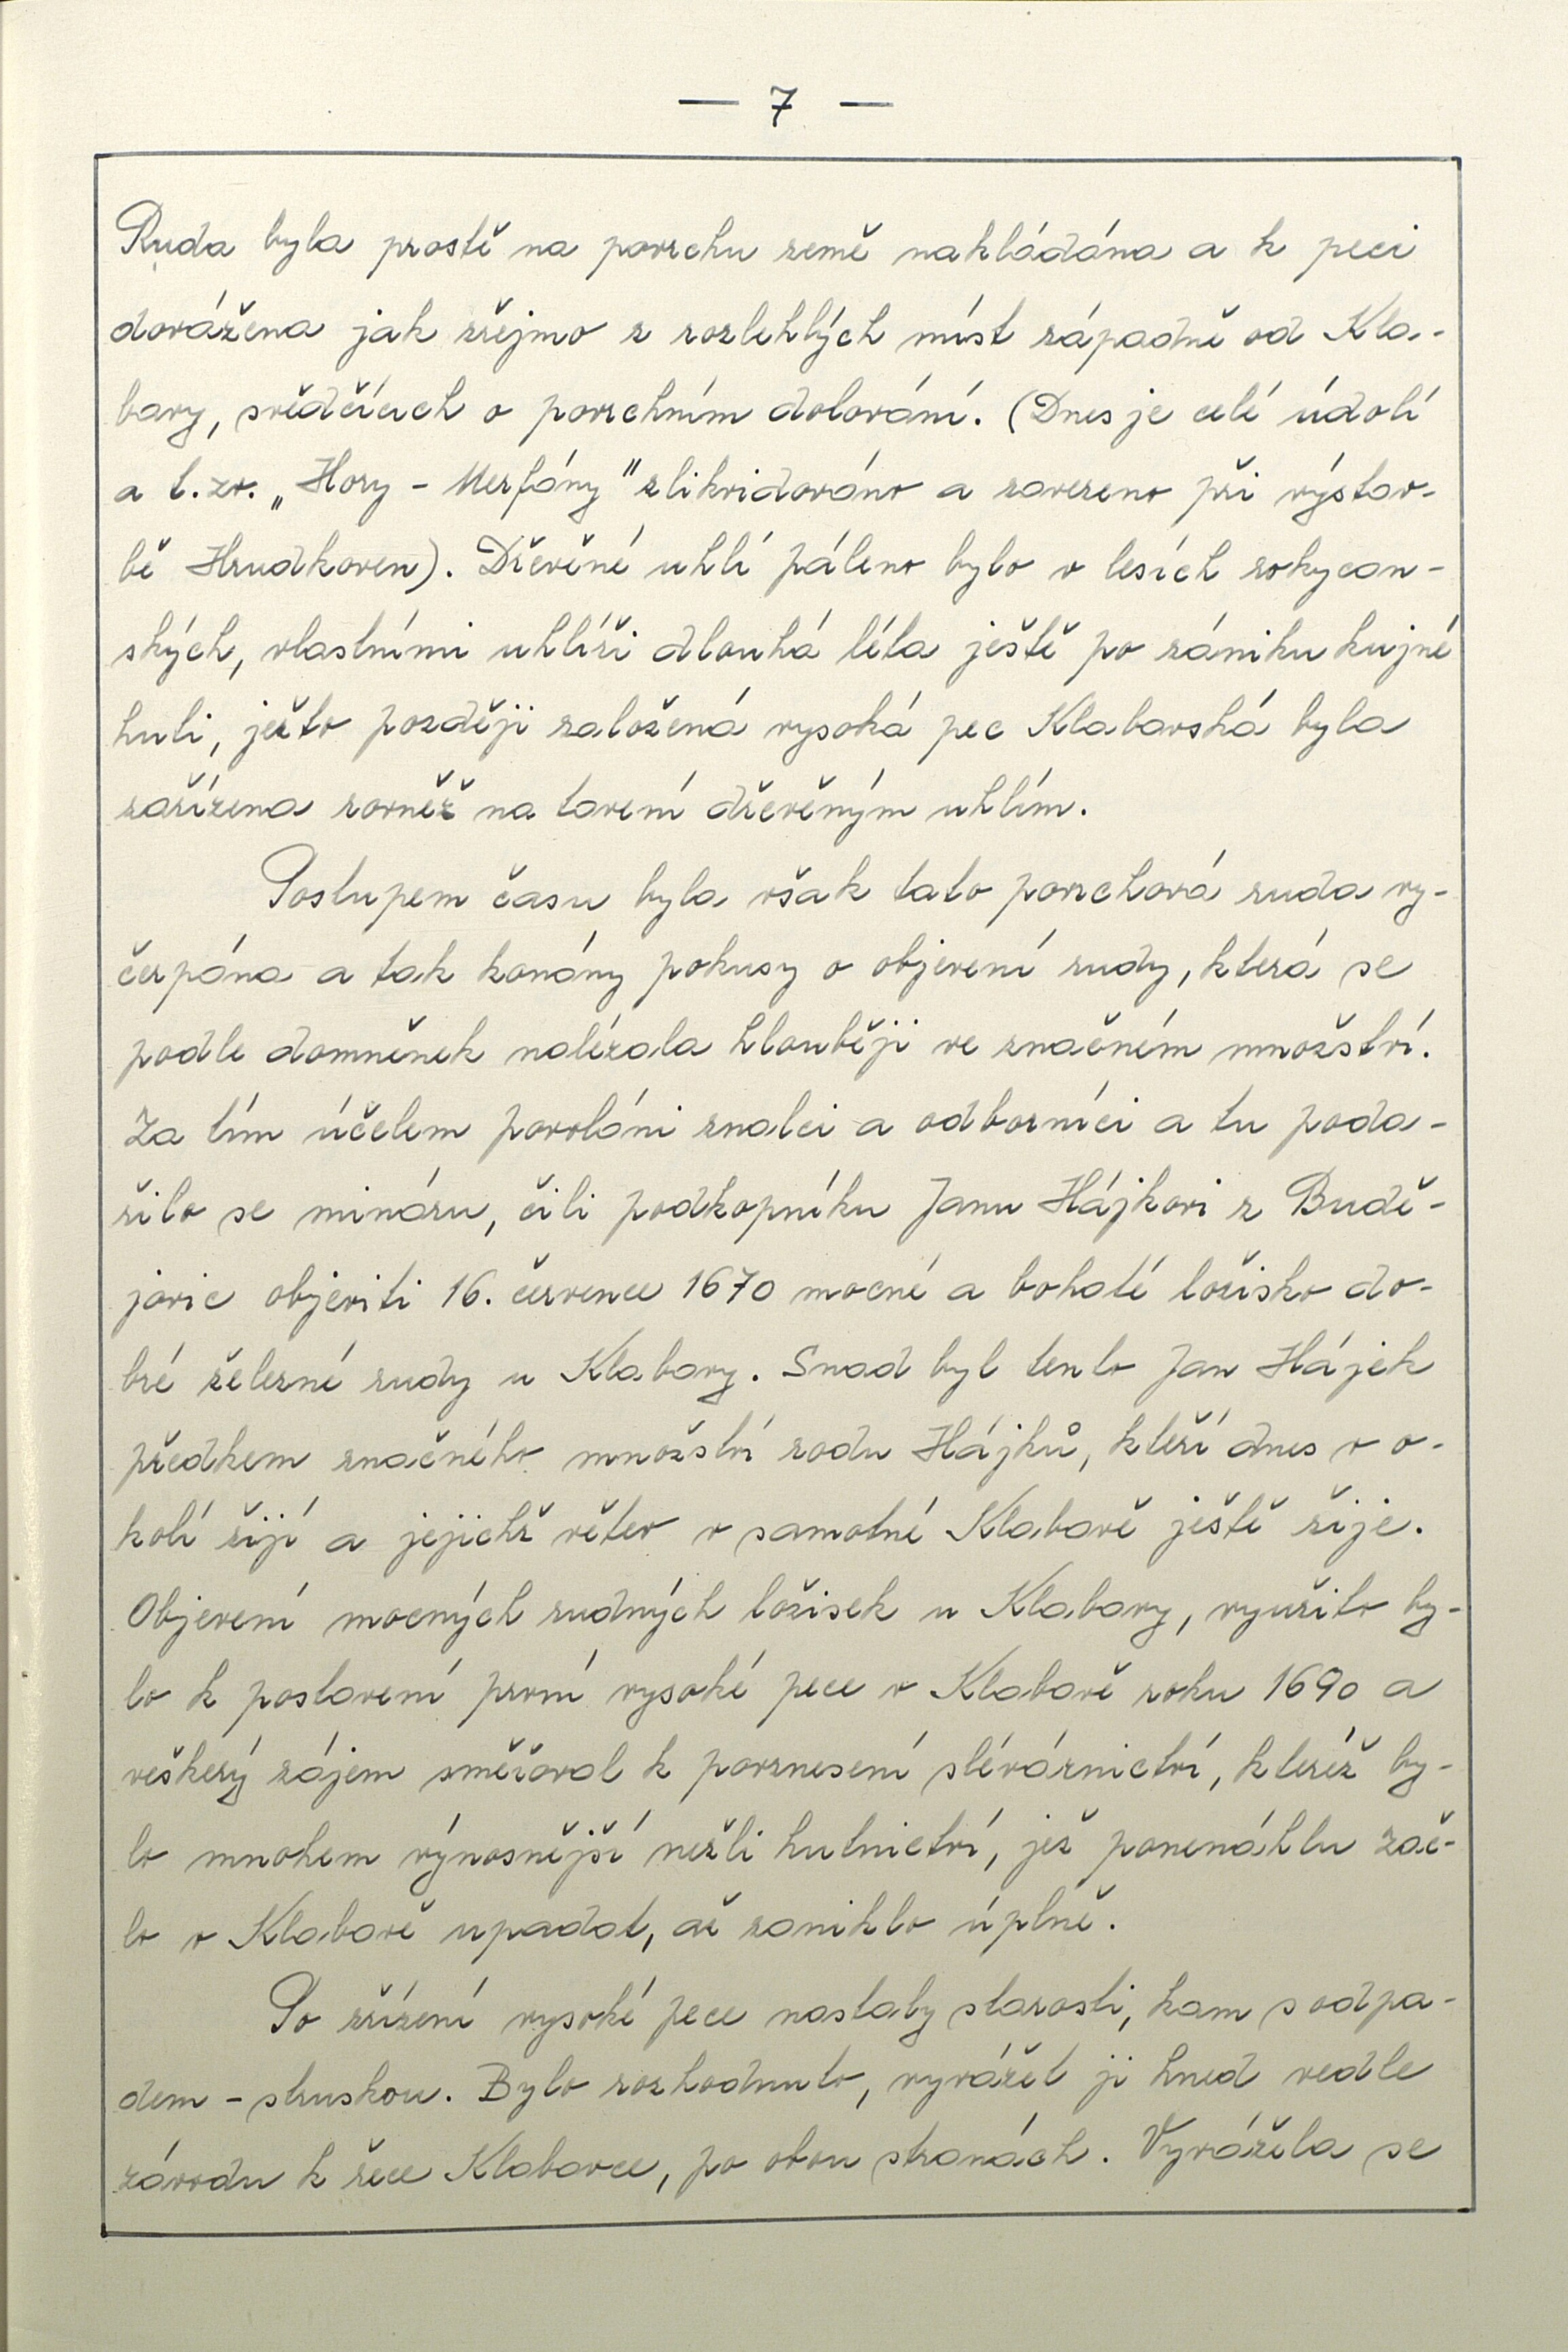 — 7 —
Ruda byla prostě na povrchu země nakládána a k peci
dovážena jak zřejmo z rozlehlých míst západně od Kla-
bavy, svědčících o povrchním dolování. (Dnes je celé údolí
a t. zv. „Hory - Merfány" zlikvidováno a zavezeno při výstav-
bě Hrudkoven). Dřevěné uhlí páleno bylo v lesích rokycan-
ských, vlastními uhlíři dlouhá léta ještě po zániku kujné
huti, ježto později založená vysoká pec Klabavská byla
zařízena rovněž na tavení dřevěným uhlím.
Postupem času byla však tato povrchová ruda vy-
čerpána a tak konány pokusy o objevení rudy, která se
podle domněnek nalézala hlouběji ve značném množství.
Za tím účelem povoláni znalci a odborníci a tu poda-
řilo se mináru, čili podkopníku Janu Hájkovi z Budě-
jovic objeviti 16. července 1670 mocné a bohaté ložisko do-
bré železné rudy u Klabavy. Snad byl tento Jan Hájek
předkem značného množství rodu Hájků, kteří dnes v o-
kolí žijí a jejichž větev v samotné Klabavě ještě žije.
Objevení mocných rudných ložisek u Klabavy, využito by-
lo k postavení první vysoké pece v Klabavě roku 1690 a
veškerý zájem směřoval k povznesení slévárnictví, kteréž by-
lo mnohem výnosnější nežli hutnictví, jež ponenáhlu zač-
lo v Klabavě upadat, až zaniklo úplně.
Po zřízení vysoké pece nastaly starosti, kam s odpa-
dem - struskou. Bylo rozhodnuto, vyvážet ji hned vedle
závodu k řece Klabavce, po obou stranách. Vyvážela se